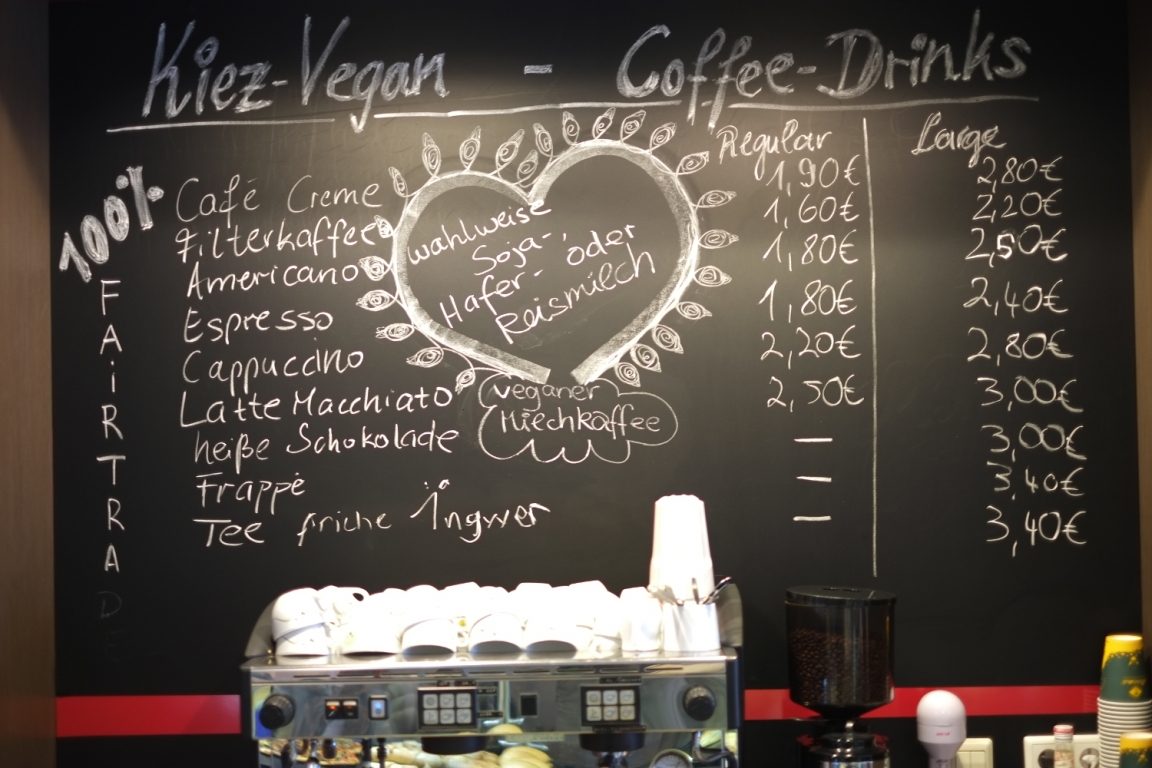 Kiez-Vegan - Coffee-Drinks
Regular Large
100%
FAiRTRADE
Café Creme 1,90€ 2,80€
Filterkaffee 1,60€ 2,20€
Americano 1,80€ 2,50€
Espresso 1,80€ 2,40€
Cappuccino 2,20€ 2,80€
Latte Macchiato 2,50€ 3,00€
heiße Schokolade — 3,00€
Frappé — 3,40€
Tee friche ingwer — 3,40€
wahlweise
Soja-, oder
Hafer-
Reismilch
veganer
Milchkaffee